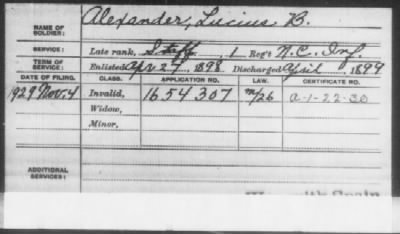 NAME OF SOLDIER: Alexander, Lucius B.
SERVICE: Late rank, Staff, 1 Reg't N.C. Inf.
TERM OF SERVICE: Enlisted Apr 27, 1898 Discharged April, 1899
DATE OF FILING. CLASS. APPLICATION NO. LAW. CERTIFICATE NO.
1929 Nov. 4 Invalid, 1654307 m/26 a-1-22-30
Widow,
Minor,
ADDITIONAL SERVICES:
with Spain